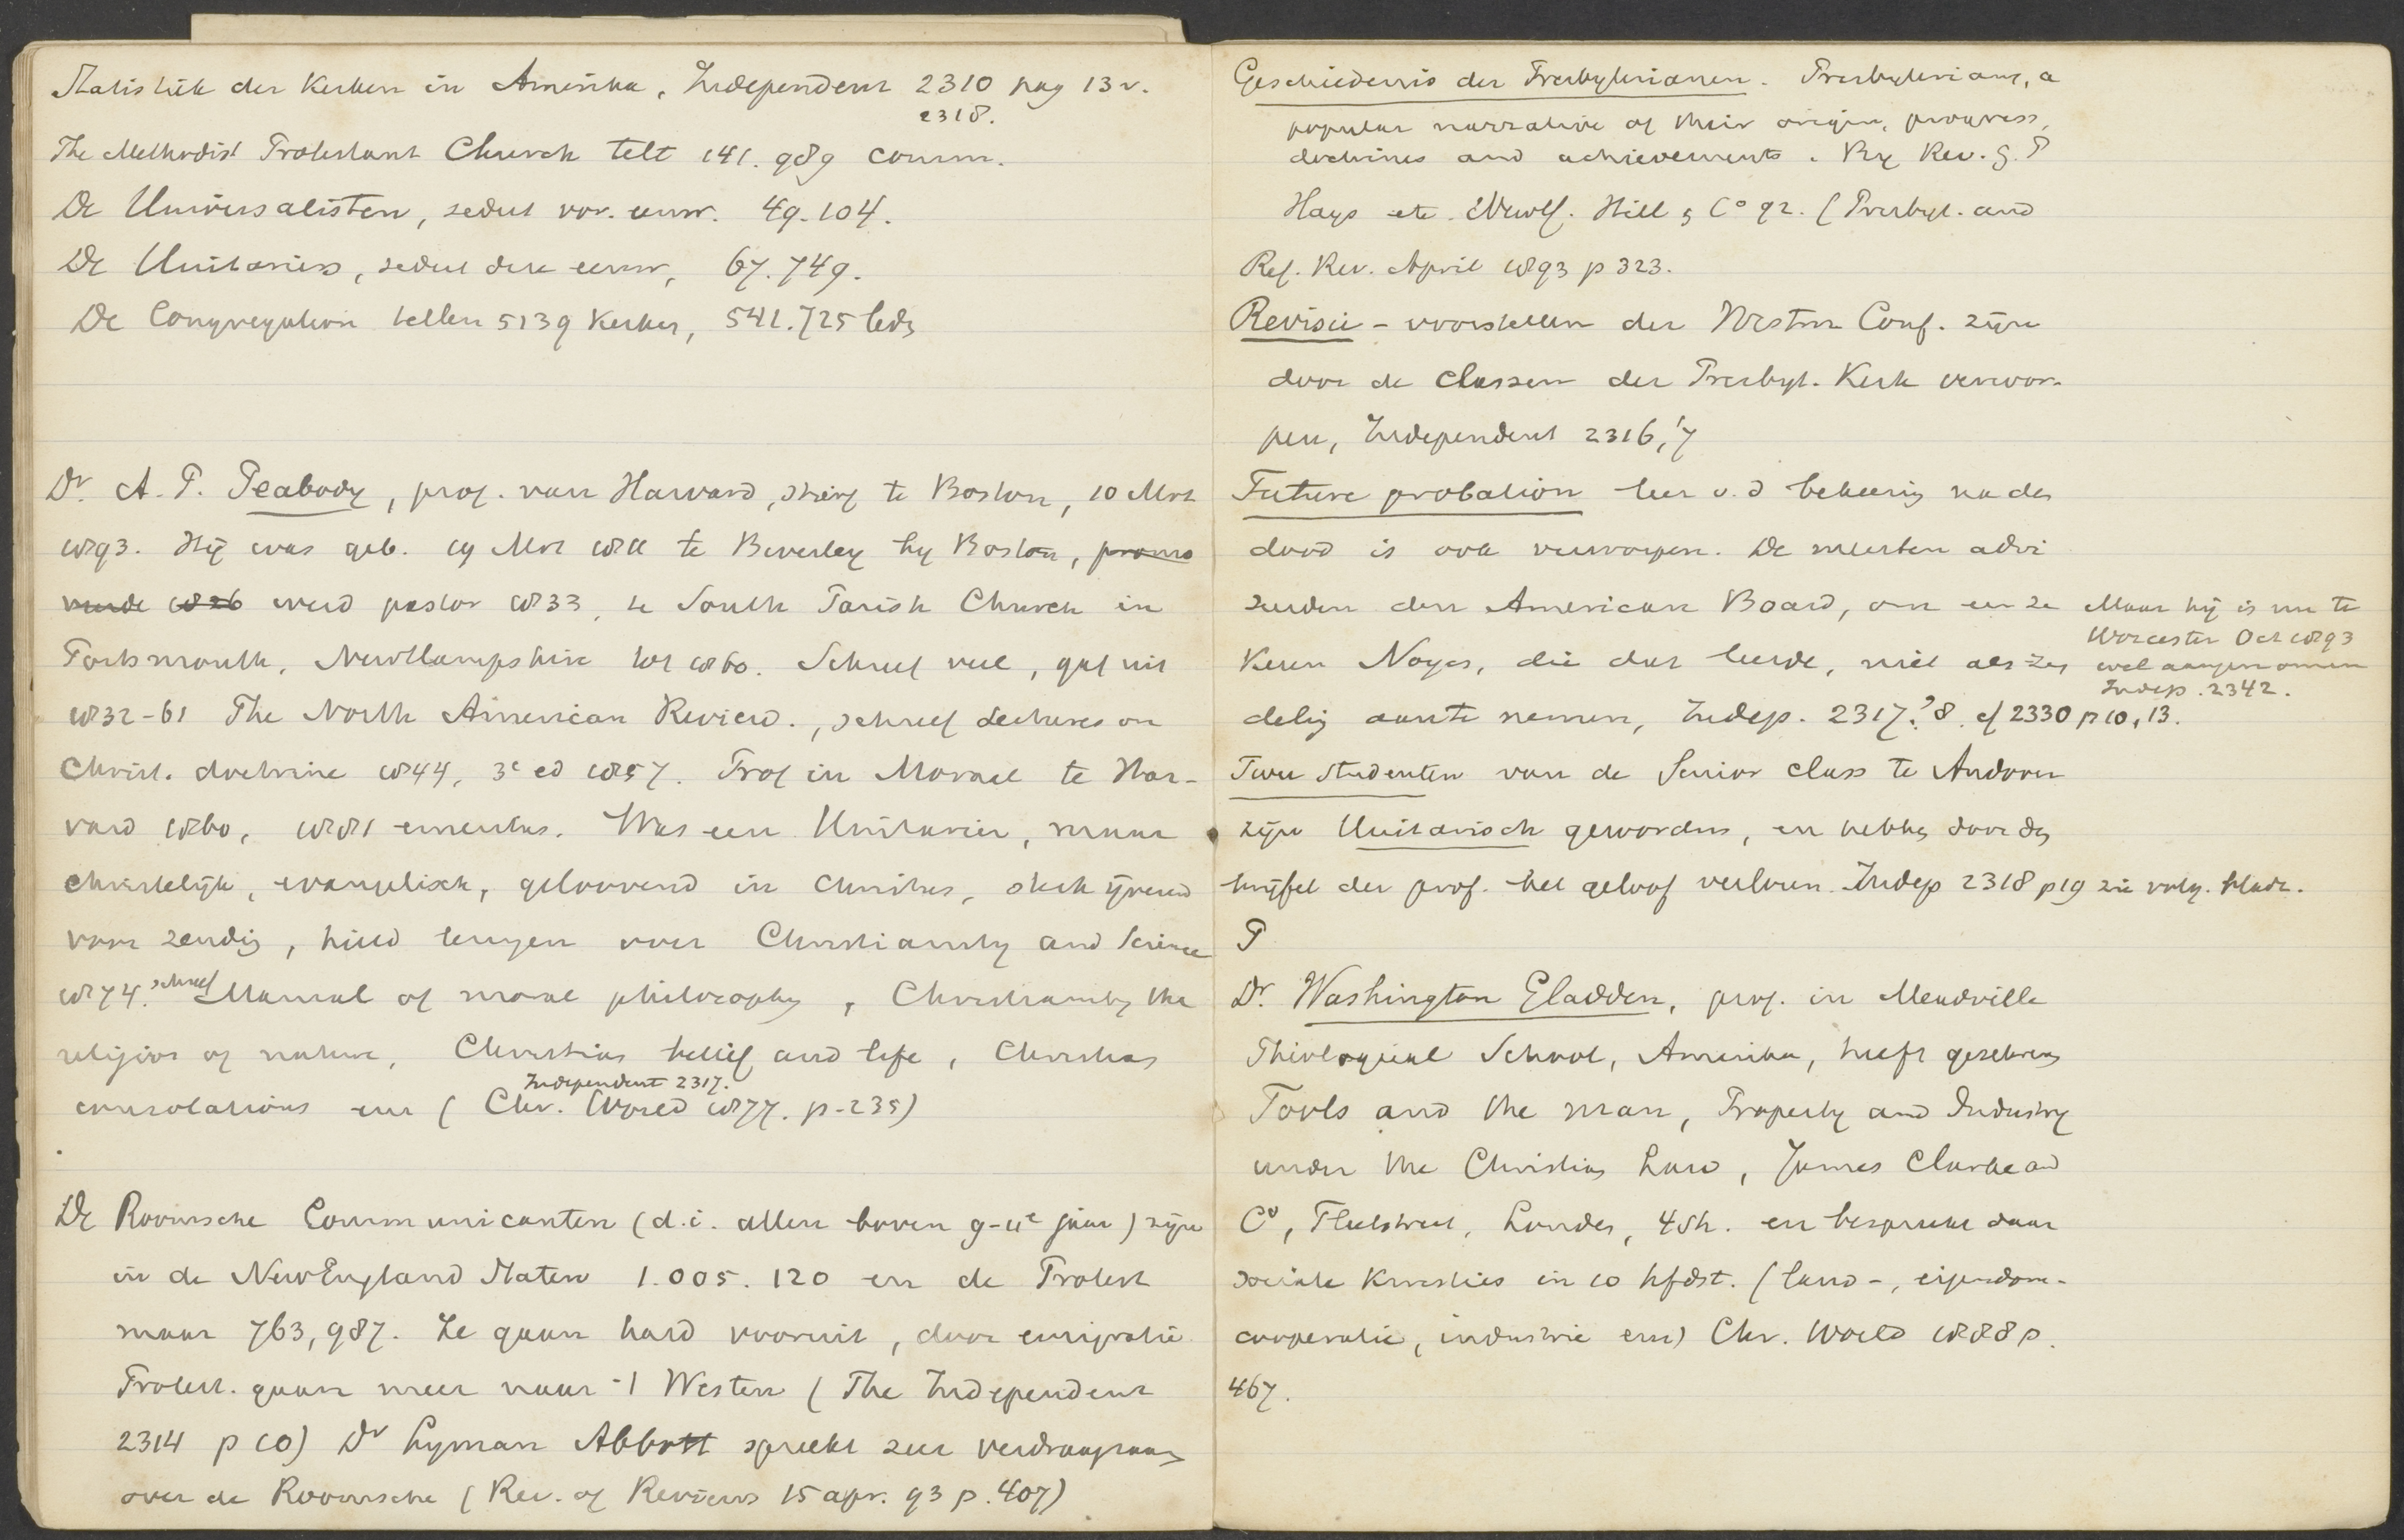 Statistiek der Kerken in Amerika, Independent 2310 pag 13v.
2318.
The Methodist Protestant Church telt 141.989 comm.
De Universalisten, sedert vor. eeuw. 49.104.
De Unitariers, sedert deze eeuw, 67.749.
De Congregation. tellen 5139 Kerken, 541.725 leden
Dr. A. P. Peabody, prof. van Harvard, stierf te Boston, 10 Mrt
1893. Hij was geb. 19 Mrt 1811 te Beverley by Boston, promo
veerde 1826 werd pastor 1833, te South Parish Church in
Portsmouth, NewHampshire tot 1860. Schreef veel, gaf uit
1832-61 The North American Review., schreef Lectures on
Christ. doctrine 1844, 3e ed 1857. Prof in Moraal te Har-
vard 1860, 1881 emeritus. Was een Unitarier, maar
christelijk, evangelisch, geloovend in Christus, sterk ijverend
voor zending, hield lezingen over Christianity and Science
1874. schreef Manual of moral philosophy, Christianity the
religion of nature, Christian belief and life, Christian
Independent 2317.
consolations enz (Chr. World 1877. p. 235)
De Roomsche Communicanten (d.i. allen boven 9-11e jaar) zijn
in de NewEngland Staten 1.005.120 en de Protest
maar 763,987. Ze gaan hard vooruit, door emigratie
Protest. gaan meer naar 't Westen (The Independent
2314 p 10) Dr Lyman Abbott spreekt zeer verdraagzaam
over de Roomsche (Rev. of Reviews 15 apr. 93 p. 407)
Geschiedenis der Presbyterianen. Presbyterians, a
popular narrative of their origin, progress,
doctrines and achievements. By Rev. G. P
Hays etc. NewY. Hill & Co 92. (Presbyt. and
Ref. Rev. April 1893 p 323.
Revisie - voorstellen der Westm Conf. zijn
door de classen der Presbyt. Kerk verwor-
pen, Independent 2316,'7
Future probation leer v.d bekeering na den
dood is ook verworpen. De meesten advi
seerden den American Board, om een ze
Maar hij is nu te
Worcester Oct 1893
keren Noyes, die dat leerde, niet als zen
wel aangenomen
Indep. 2342.
deling aan te nemen, Indep. 2317,'8. cf 2330 p 10, 13.
Twee studenten van de Senior class te Andover
zijn Unitarisch geworden, en hebben door den
twijfel der prof. het geloof verloren. Indep 2318 p 19 zie volg. bladz.
P
Dr. Washington Gladden, prof. in Meadville
Theological School, Amerika, heeft geschreven
Tools and the man, Property and Industry
under the Christian Law, James Clarke and
Co, Fleetstreet, London, 4 sh. en bespreekt daar
sociale kwesties in 10 hfdst. (land-, eigendom-
cooperatie, industrie enz) Chr. World 1888 p.
467.